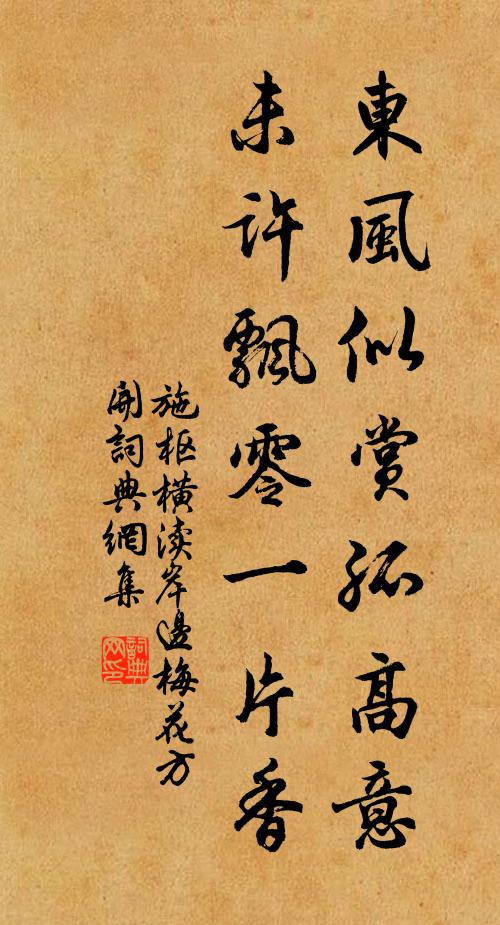 東風似賞孤高意
未許飄零一片香
施枢橫渎岸邊梅花方
開詞典網集
詞典
网印